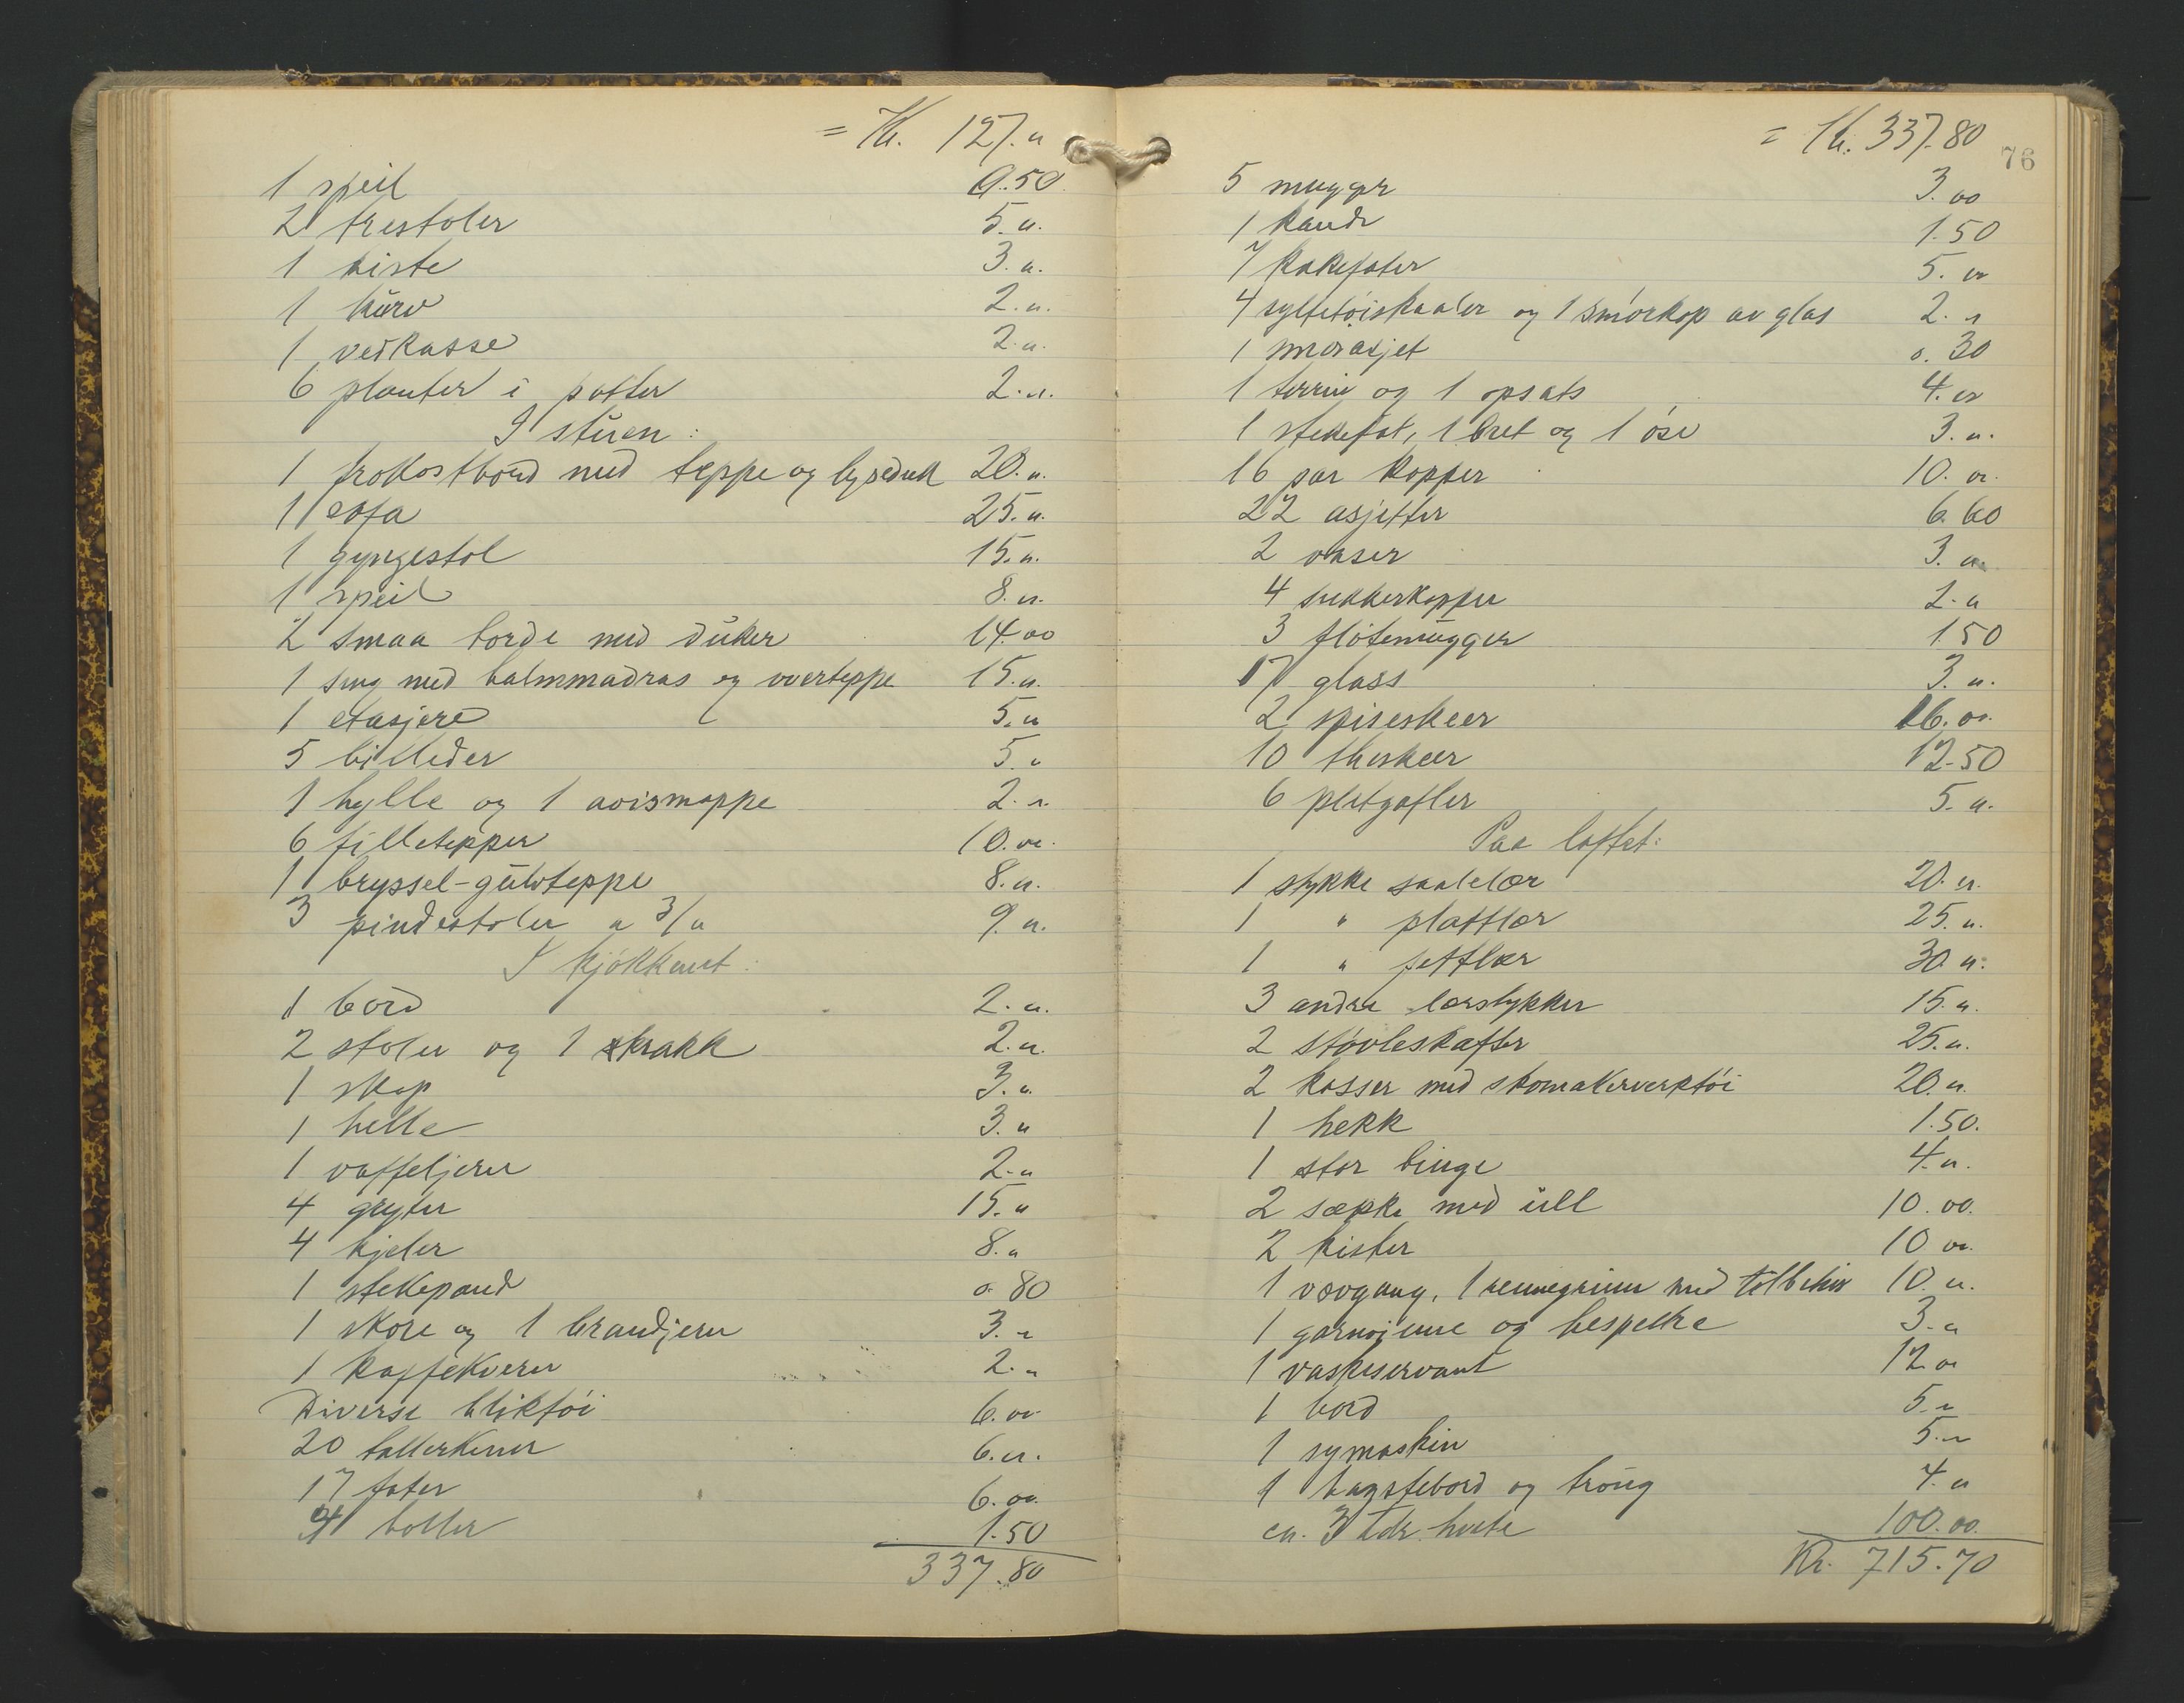 = Kr. 127.00
1 speil 0.50
2 trestoler 5.00
1 kiste 3.00
1 kurv 2.00
1 vedkasse 2.00
6 planter i potter 2.00
I stuen:
1 frokostbord med teppe og lysduk 20.00
1 sofa 25.00
1 gyngestol 15.00
1 speil 8.00
2 smaa borde med duker 14.00
1 seng med halmmadras og overteppe 15.00
1 etasjere 5.00
5 billeder 5.00
1 hylle og 1 avismappe 2.00
6 filletepper 10.00
1 bryssel-gulvteppe 8.00
3 pindestoler a 3/00 9.00
I kjøkkenet:
1 bord 2.00
2 stoler og 1 krakk 2.00
1 skap 3.00
1 helle 3.00
1 vaffeljern 2.00
4 gryter 15.00
4 kjeler 8.00
1 stekepande 0.80
1 skore og 1 brandjern 3.00
1 kaffekvern 2.00
Diverse bliktøi 6.00
20 tallerkener 6.00
17 fater 6.00
4 boller 1.50
337.80
= Kr. 337.80
76
5 mugger 3.00
1 kande 1.50
7 kakefater 5.00
4 syltetøiskaaler og 1 smørkop av glas 2.00
1 smørasjet 0.30
1 terrin og 1 opsats 4.00
1 stekefat, 1 bret og 1 øse 3.00
16 par kopper 10.00
22 asjetter 6.60
2 vaser 3.00
4 sukkerkopper 2.00
3 fløtemugger 1.50
17 glass 3.00
2 spiseskeer 16.00
10 theskeer 12.50
6 pletgafler 5.00
Paa loftet:
1 stykke saalelær 20.00
1 " plattlær 25.00
1 " fettlær 30.00
3 andre lærstykker 15.00
2 støvleskafter 25.00
2 kasser med skomakerverktøi 20.00
1 hekk 1.50.
1 stor binge 4.00
2 sække med ull 10.00.
2 kister 10.00
1 vævgang, 1 rennegrinn med tilbehør 10.00
1 garnvinne og hespetre 3.00
1 vaskeservant 12.00
1 bord 5.00
1 symaskin 5.00
1 bagstebord og troug 4.00
ca. 3 tdr. hvete 100.00.
Kr. 715.70